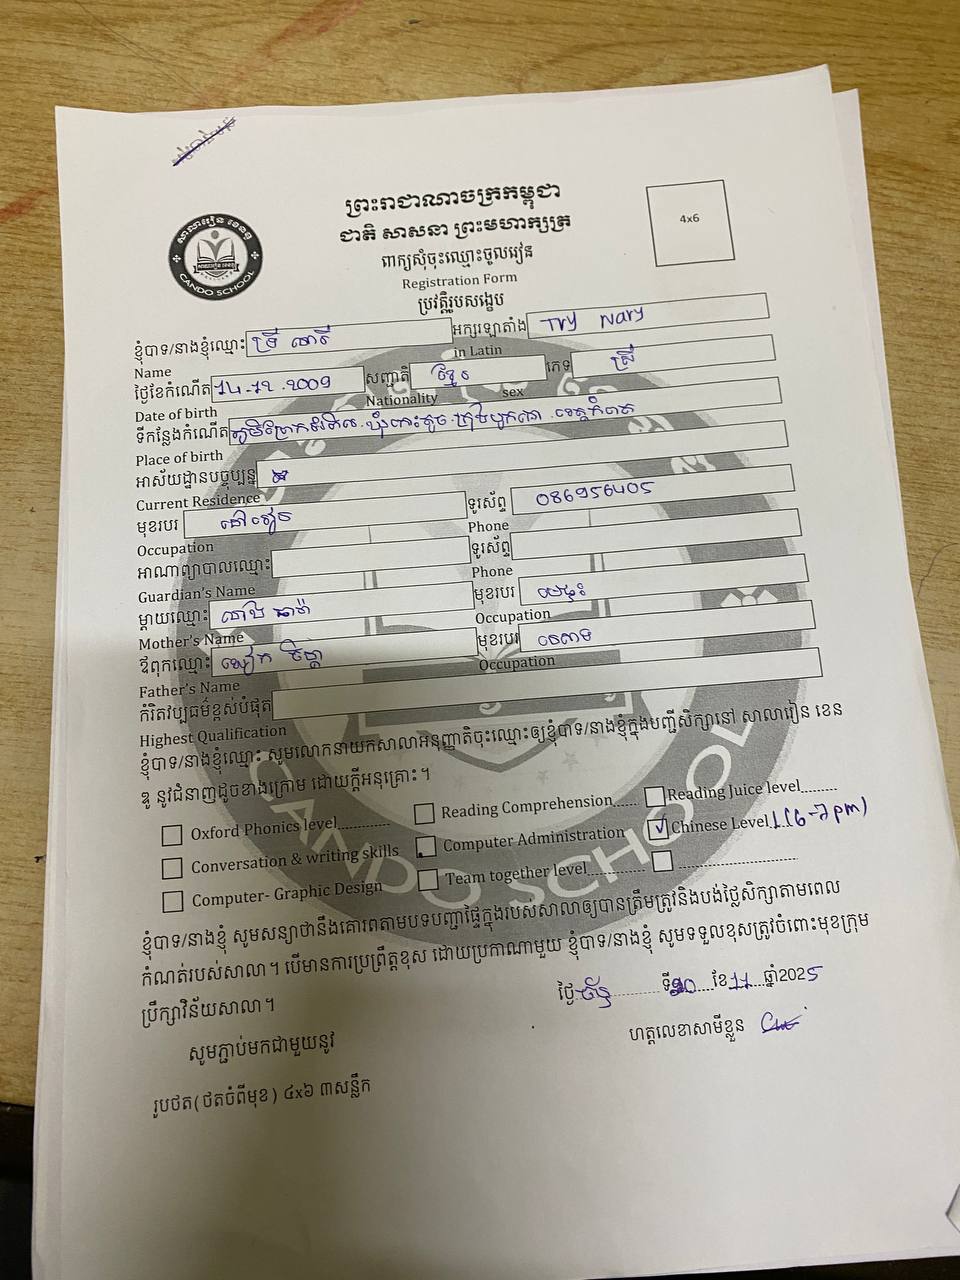 ព្រះរាជាណាចក្រកម្ពុជា
ជាតិ សាសនា ព្រះមហាក្សត្រ
ពាក្យសុំចុះឈ្មោះចូលរៀន
Registration Form
ប្រវត្តិរូបសង្ខេប
4x6
សាលារៀន ខេនឌូ
CANDO SCHOOL
ខ្ញុំបាទ/នាងខ្ញុំឈ្មោះ ទ្រី ណារី អក្សរឡាតាំង Try Nary
Name in Latin
ថ្ងៃខែកំណើត 14.12.2009 សញ្ជាតិ ខ្មែរ ភេទ ស្រី
Date of birth Nationality sex
ទីកន្លែងកំណើត
Place of birth
អាស័យដ្ឋានបច្ចុប្បន្ន
Current Residence
មុខរបរ នៅរៀន ទូរស័ព្ទ 086956405
Occupation Phone
អាណាព្យាបាលឈ្មោះ ទូរស័ព្ទ
Guardian's Name Phone
ម្តាយឈ្មោះ មុខរបរ មេផ្ទះ
Mother's Name Occupation
ឪពុកឈ្មោះ មុខរបរ
Father's Name Occupation
កំរិតវប្បធម៌ខ្ពស់បំផុត
Highest Qualification
ខ្ញុំបាទ/នាងខ្ញុំឈ្មោះ សូមលោកនាយកសាលាអនុញ្ញាតិចុះឈ្មោះឲ្យខ្ញុំបាទ/នាងខ្ញុំក្នុងបញ្ជីសិក្សានៅ សាលារៀន ខេន
ឌូ នូវជំនាញដូចខាងក្រោម ដោយក្តីអនុគ្រោះ។
Oxford Phonics level............ Reading Comprehension...... Reading Juice level.........
Conversation & writing skills Computer Administration Chinese Level 1 (6-7 pm)
Computer- Graphic Design Team together level..............
ខ្ញុំបាទ/នាងខ្ញុំ សូមសន្យាថានឹងគោរពតាមបទបញ្ជាផ្ទៃក្នុងរបស់សាលាឲ្យបានត្រឹមត្រូវនិងបង់ថ្លៃសិក្សាតាមពេល
កំណត់របស់សាលា។ បើមានការប្រព្រឹត្តខុស ដោយប្រការណាមួយ ខ្ញុំបាទ/នាងខ្ញុំ សូមទទួលខុសត្រូវចំពោះមុខក្រុម
ប្រឹក្សាវិន័យសាលា។
ថ្ងៃ ច័ន្ទ ទី ខែ 11 ឆ្នាំ2025
សូមភ្ជាប់មកជាមួយនូវ
ហត្ថលេខាសាមីខ្លួន
រូបថត(ថតចំពីមុខ) ៤x៦ ៣សន្លឹក